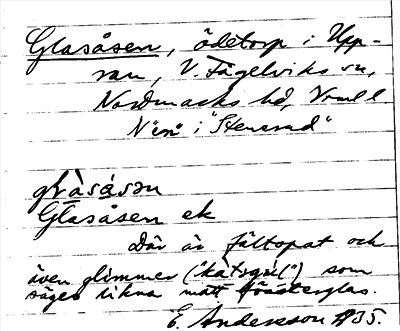 Glasåsen, ödetorp i Upp-
ran, V. Fågelviks sn,
Nordmarks hd, Vrml
N"en" i "Stensrud"
glàsåsən
Glasåsen ek
Där är fältspat och
även glimmer ("kàtsgul") som
säges likna matt fönsterglas.
E. Andersson 1935.